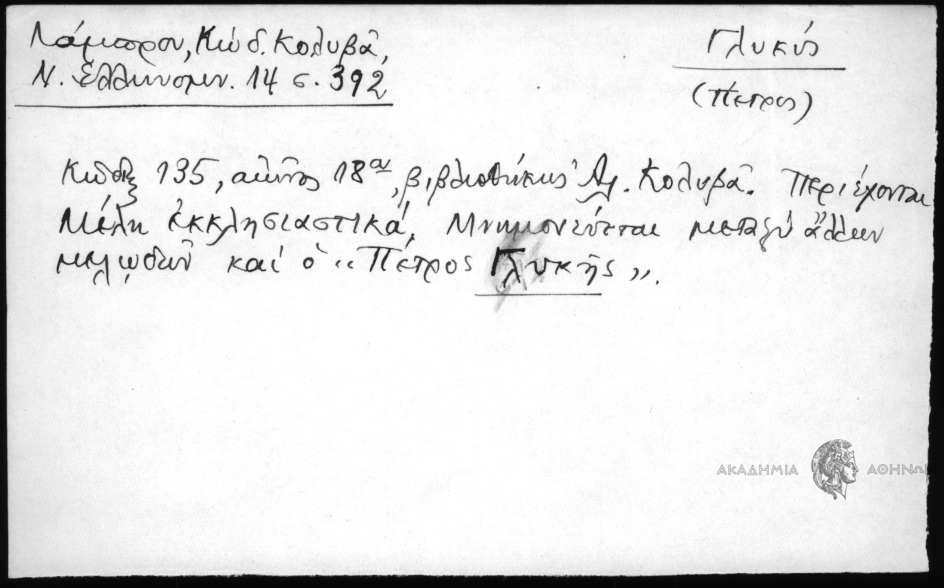 Λάμπρου, Κώδ. Κολυβᾶ,
Ν. Ἑλληνομν. 14 σ. 392
Γλυκύς
(Πέτρος)
Κῶδιξ 135, αἰῶνος 18ου, βιβλιοθήκης Ἀλ. Κολυβᾶ. Περιέχονται
Μέλη ἐκκλησιαστικά. Μνημονεύεται μεταξὺ ἄλλων
μελῳδῶν καί ὁ „Πέτρος Γλυκής”.
ΑΚΑΔΗΜΙΑ ΑΘΗΝΩΝ